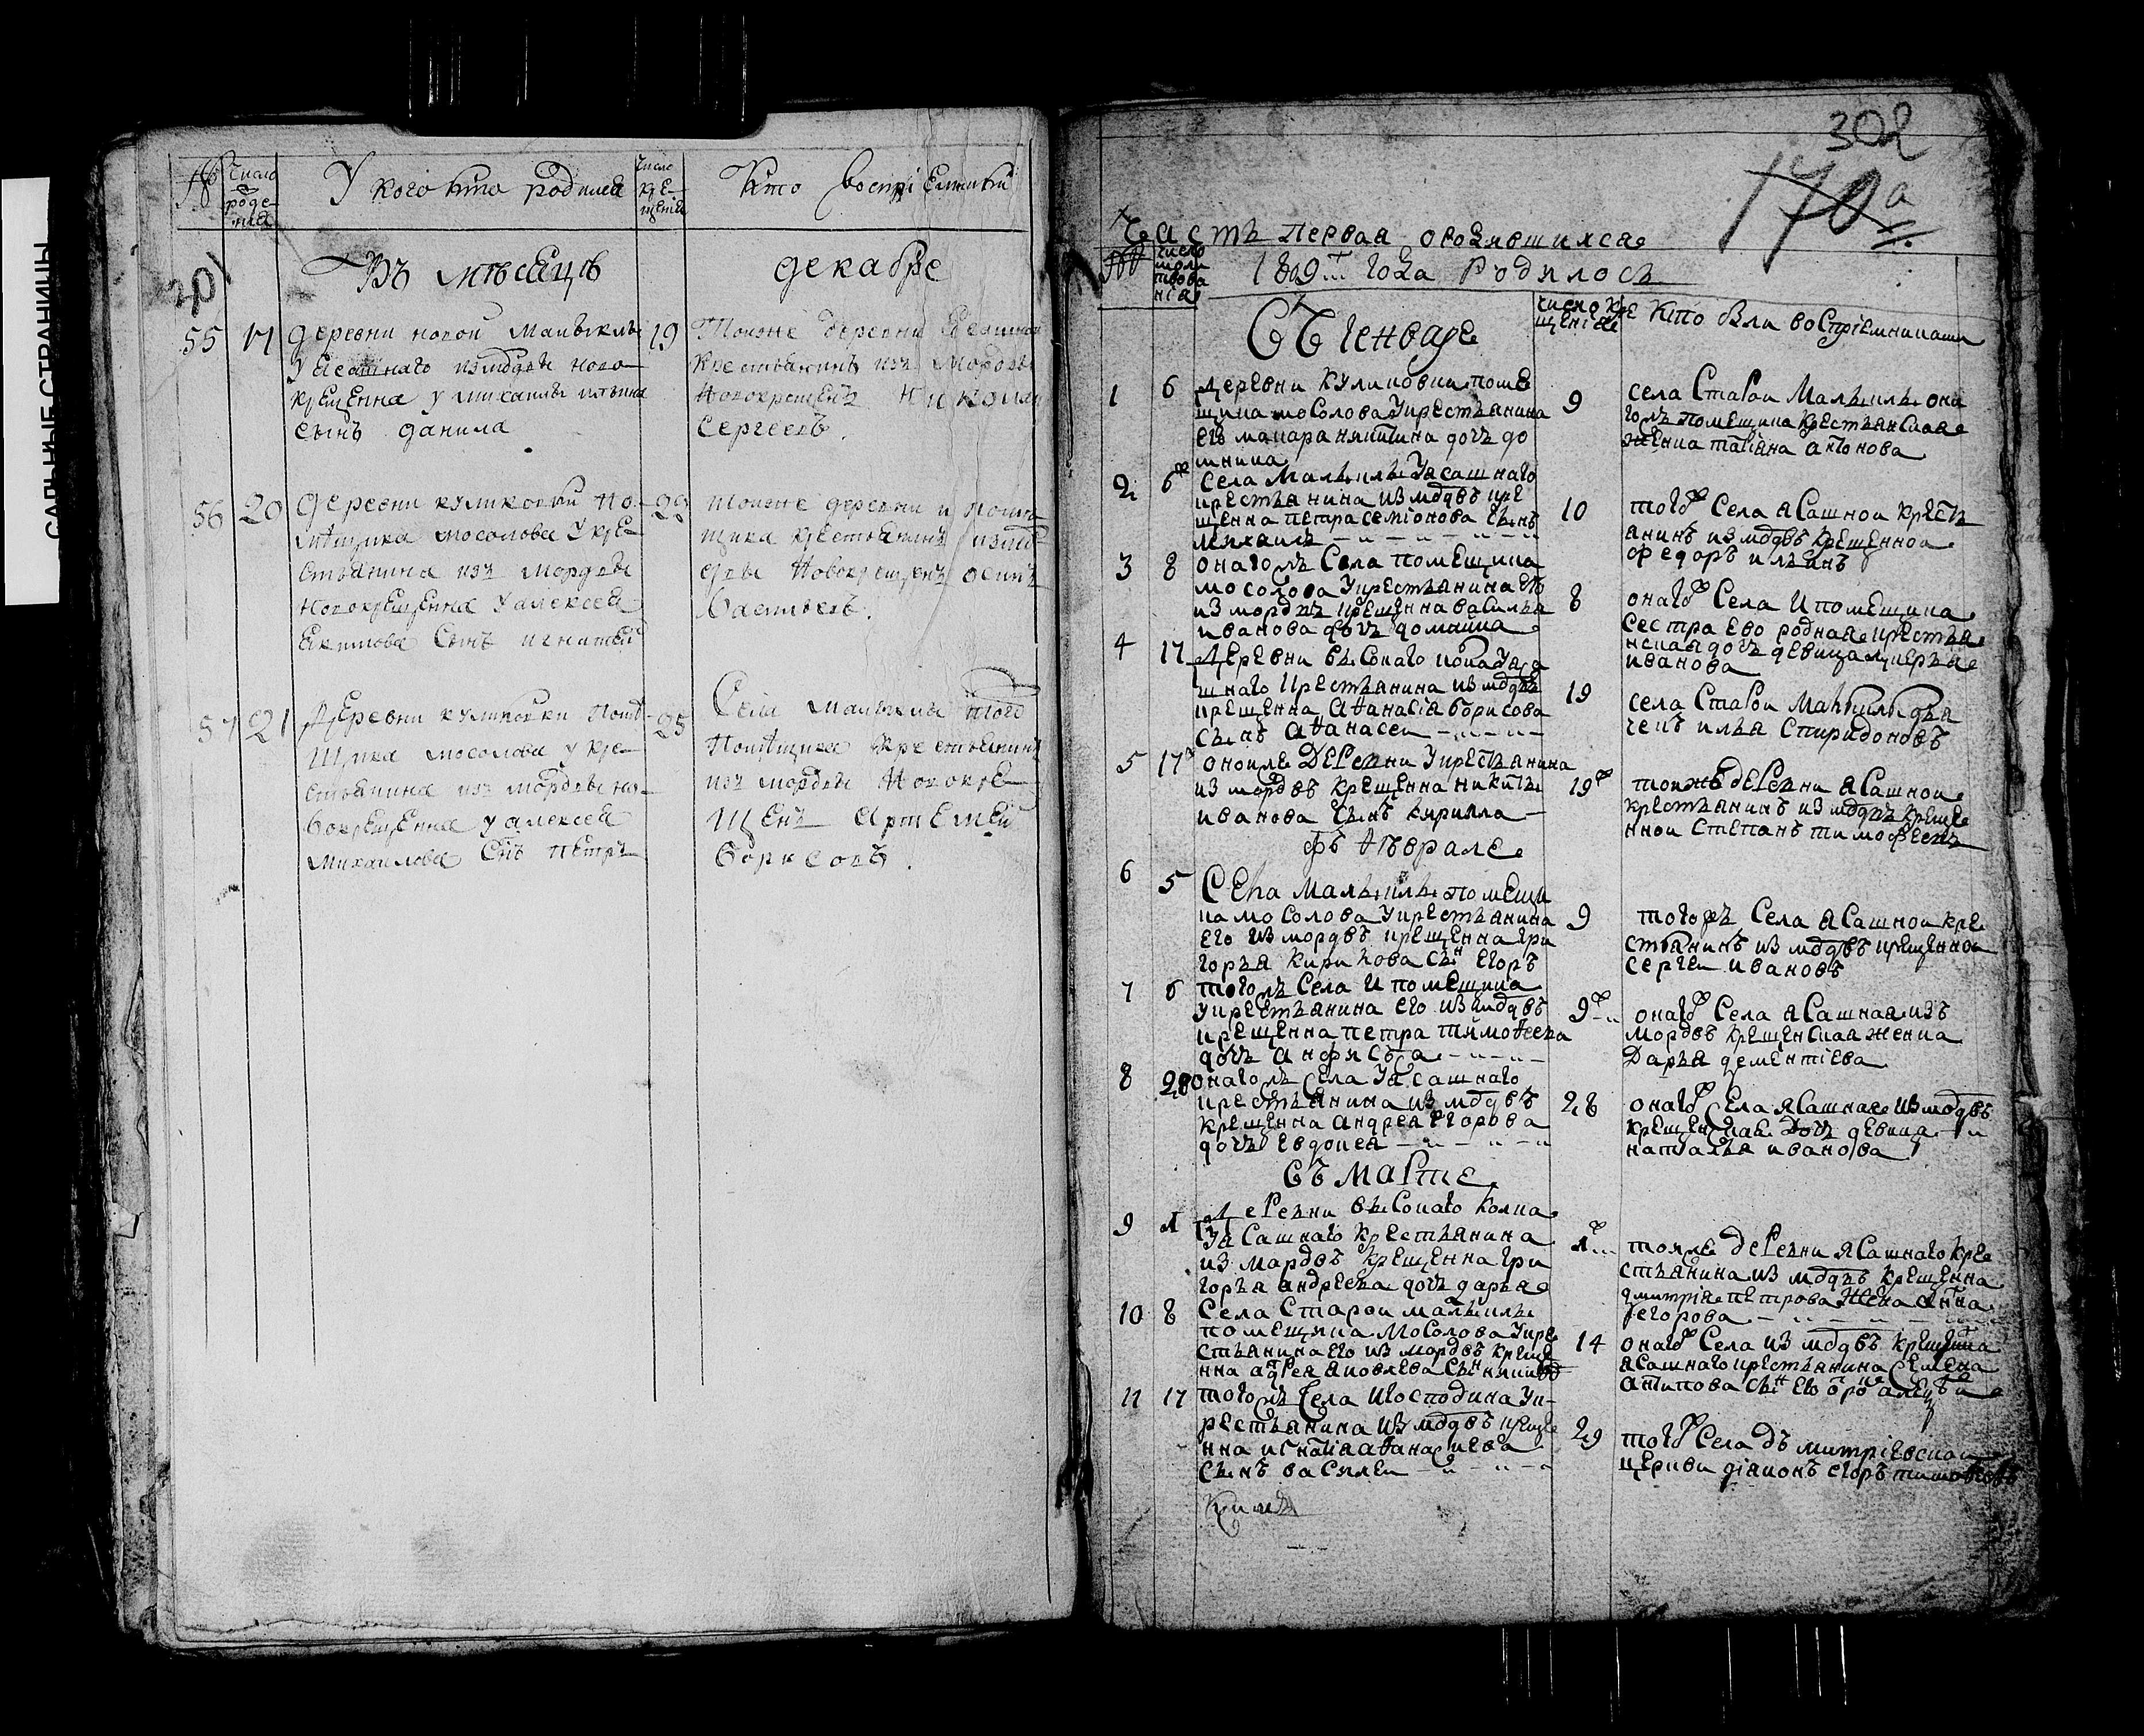 САЛЬНЫЕ СТРАНИЦЫ
№
Число
роде-
нія
У кого кто родился
Число
кре-
щенія
Кто воспріемники
301
Въ месецѣ декабре
55 17 деревни новой Малыклы
У ясашнаго из мордвы ново-
крещенна у михаилы ильина
сынъ данила
19 Тоиже деревни ясашной
крестьянинъ изъ Мордвы
Новокрещенъ Николай
Сергеевъ.
56 20 деревни куликовки по-
мѣщика мосолова У кре-
стьянина изъ мордвы
новокрещенна У алексея
Екимова Сынъ игнатей
23 тоиже деревни и помѣ
щика крестьянинъ измо
рдвы Новокрещенъ осипъ
Васильевъ.
57 21 Деревни куликовки помѣ-
щика мосолова у кре-
стьянина изъ мордвы но-
вокрещенна у алексея
Михаилова Снъ петръ
25 Села малыклы того
Помѣщика крестьянинъ
изъ мордвы Новокре-
щенъ Артемей
Борисовъ.
302
170а
Часть первая о родившихся
№
число
моли
твова
нія
1809го года Родилось
Съ Генваре
число кре
щенія
Кто были воспріемниками
1 6 деревни Куликовки поме
щика мосолова Укрестьянина
его макара никитина дочь до
мника
9 села Старои Малыклы они
гожъ помещика крестьянская
женка татіана антонова
2 6го Села Малыклы Уясашнаго
крестьянина из мордвъ кре
щенна петра семіонова сынъ
михаилъ
10 того Села ясашнои кресть
янинъ из мордвъ крещеннои
федоръ ильинъ
3 8 онагожъ Села помещика
мосолова Укрестьянина его
из мордвъ крещенна василья
иванова дочь домника
8 онаго Села и помещика
сестра ево родная крестья
нская дочь девица лукерья
иванова
4 17 Деревни высокаго колка Уяса
шнаго крестьянина из мордвъ
крещенна аѳанасія борисова
сынъ аѳанасеи
19 села Старои Малыклы дья
чекъ илья Спиридоновъ
5 17го оноиже деревни Укрестьянина
из мордвъ крещенна никиты
иванова сынъ кирилла
19го тоижъ деревни ясашнои
крестьянинъ из мордвъ креще
ннои Степанъ тимофеевъ
фъ Ѳеврале
6 5 Села малыклы помещи
ка мосолова Укрестьянина
его из мордвъ крещенна гри
горья Кирилова сынъ Егоръ
9 тогожъ Села ясашнои кре
стьянинъ из мордвъ крещеннои
сергеи ивановъ
7 6 тогожъ Села и помещика
укрестьянина его из мордвъ
крещенна петра тимоѳеева
дочь анфиса
9го онаго Села ясашная изъ
мордвъ крещенская женка
дарья дементіева
8 28 онагожъ села Уясашнаго
крестьянина из мордвъ
крещенна андрея егорова
дочь евдокея
28 онаго села ясашная из мордвъ
крещенская дочь девица
наталья иванова
Съ Марте
9 1 Деревни высокаго колка
Уясашнаго крестьянина
из мордвъ крещенна гри
горья андреева дочь дарья
1го тояже деревни ясашнаго кре
стьянина из мордвъ крещенна
дмитрія петрова жена анна
егорова
10 8 Села Старои малыклы
помещика Мосолова Укре
стьянина его из мордвъ креще
нна андрея яковлева сынъ никита
14 онаго Села из мордвъ крещенна
ясашнаго крестьянина Семена
антипова сынъ его
11 17 тогожъ Села и господина Ук-
рестьянина из мордвъ креще
нна игнатія аѳанасиева
сынъ василеи
29 того Села дъмитріевскои
церкви діяконъ егоръ тимоѳеевъ